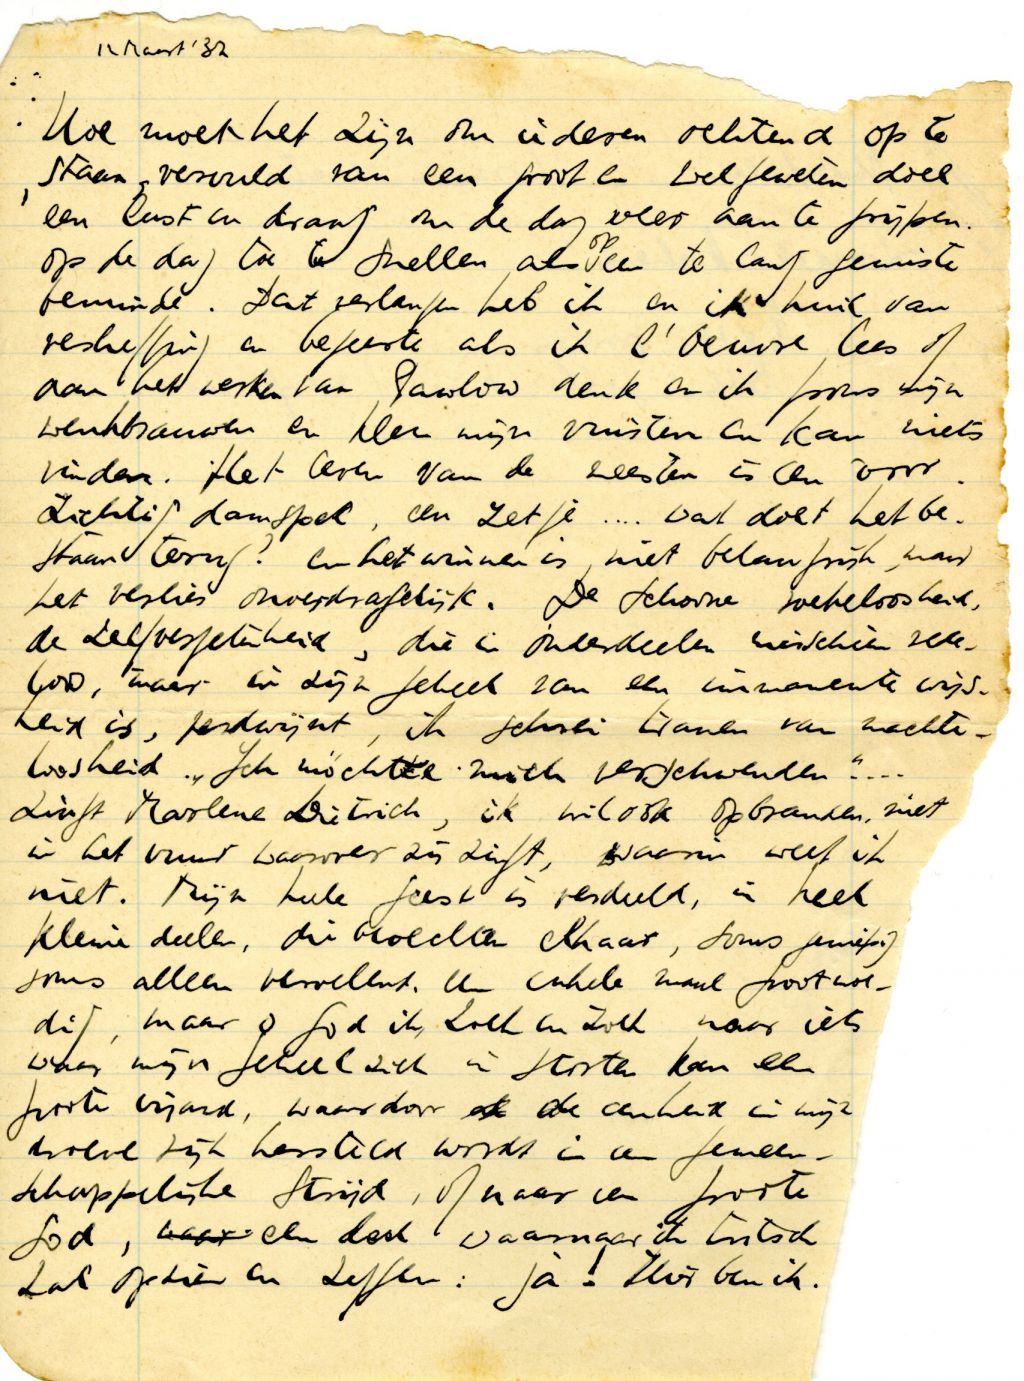 12 Maart '32
Hoe moet het zijn om iederen ochtend op te
staan, vervuld van een groot en welgeweten doel
een lust en drang om de dag weer aan te grijpen.
op de dag toe te snellen als op een te lang gemiste
beminde. Dat verlangen heb ik en ik huil van
verheffing en begeerte als ik l'Oeuvre lees of
aan het werken van Pawlow denk en ik frons mijn
wenkbrauwen en klem mijn vuisten en kan niets
vinden. Het leven van de meesten is een voor-
zichtig damspel, een zetje .... wat doet het be-
staan terug? en het winnen is niet belangrijk maar
het verlies onverdragelijk. De schoone roekeloosheid,
de zelfvergetenheid, die in onderdeelen misschien rede-
loos, maar in zijn geheel van een immanente wijs-
heid is, verdwijnt, ik schrei tranen van machte-
loosheid. „Ich möchte mich verschwenden"....
zingt Marlene Dietrich, ik wil ook opbranden, niet
in het vuur waarover zij zingt, waarin weet ik
niet. Mijn heele geest is verdeeld, in heel
kleine deelen, die elkaar, soms
soms alleen vervelend. Een enkele maal grootmoe-
dig, maar o God ik zoek en zoek naar iets
waar mijn geheel zich in storten kan een
groote vijand, waardoor de eenheid in mijn
droeve rijk hersteld wordt in een gemeen-
schappelijke strijd, of naar een groote
God, waar een waarnaar ik trotsch
zal opzien en zeggen: ja! Hier ben ik.